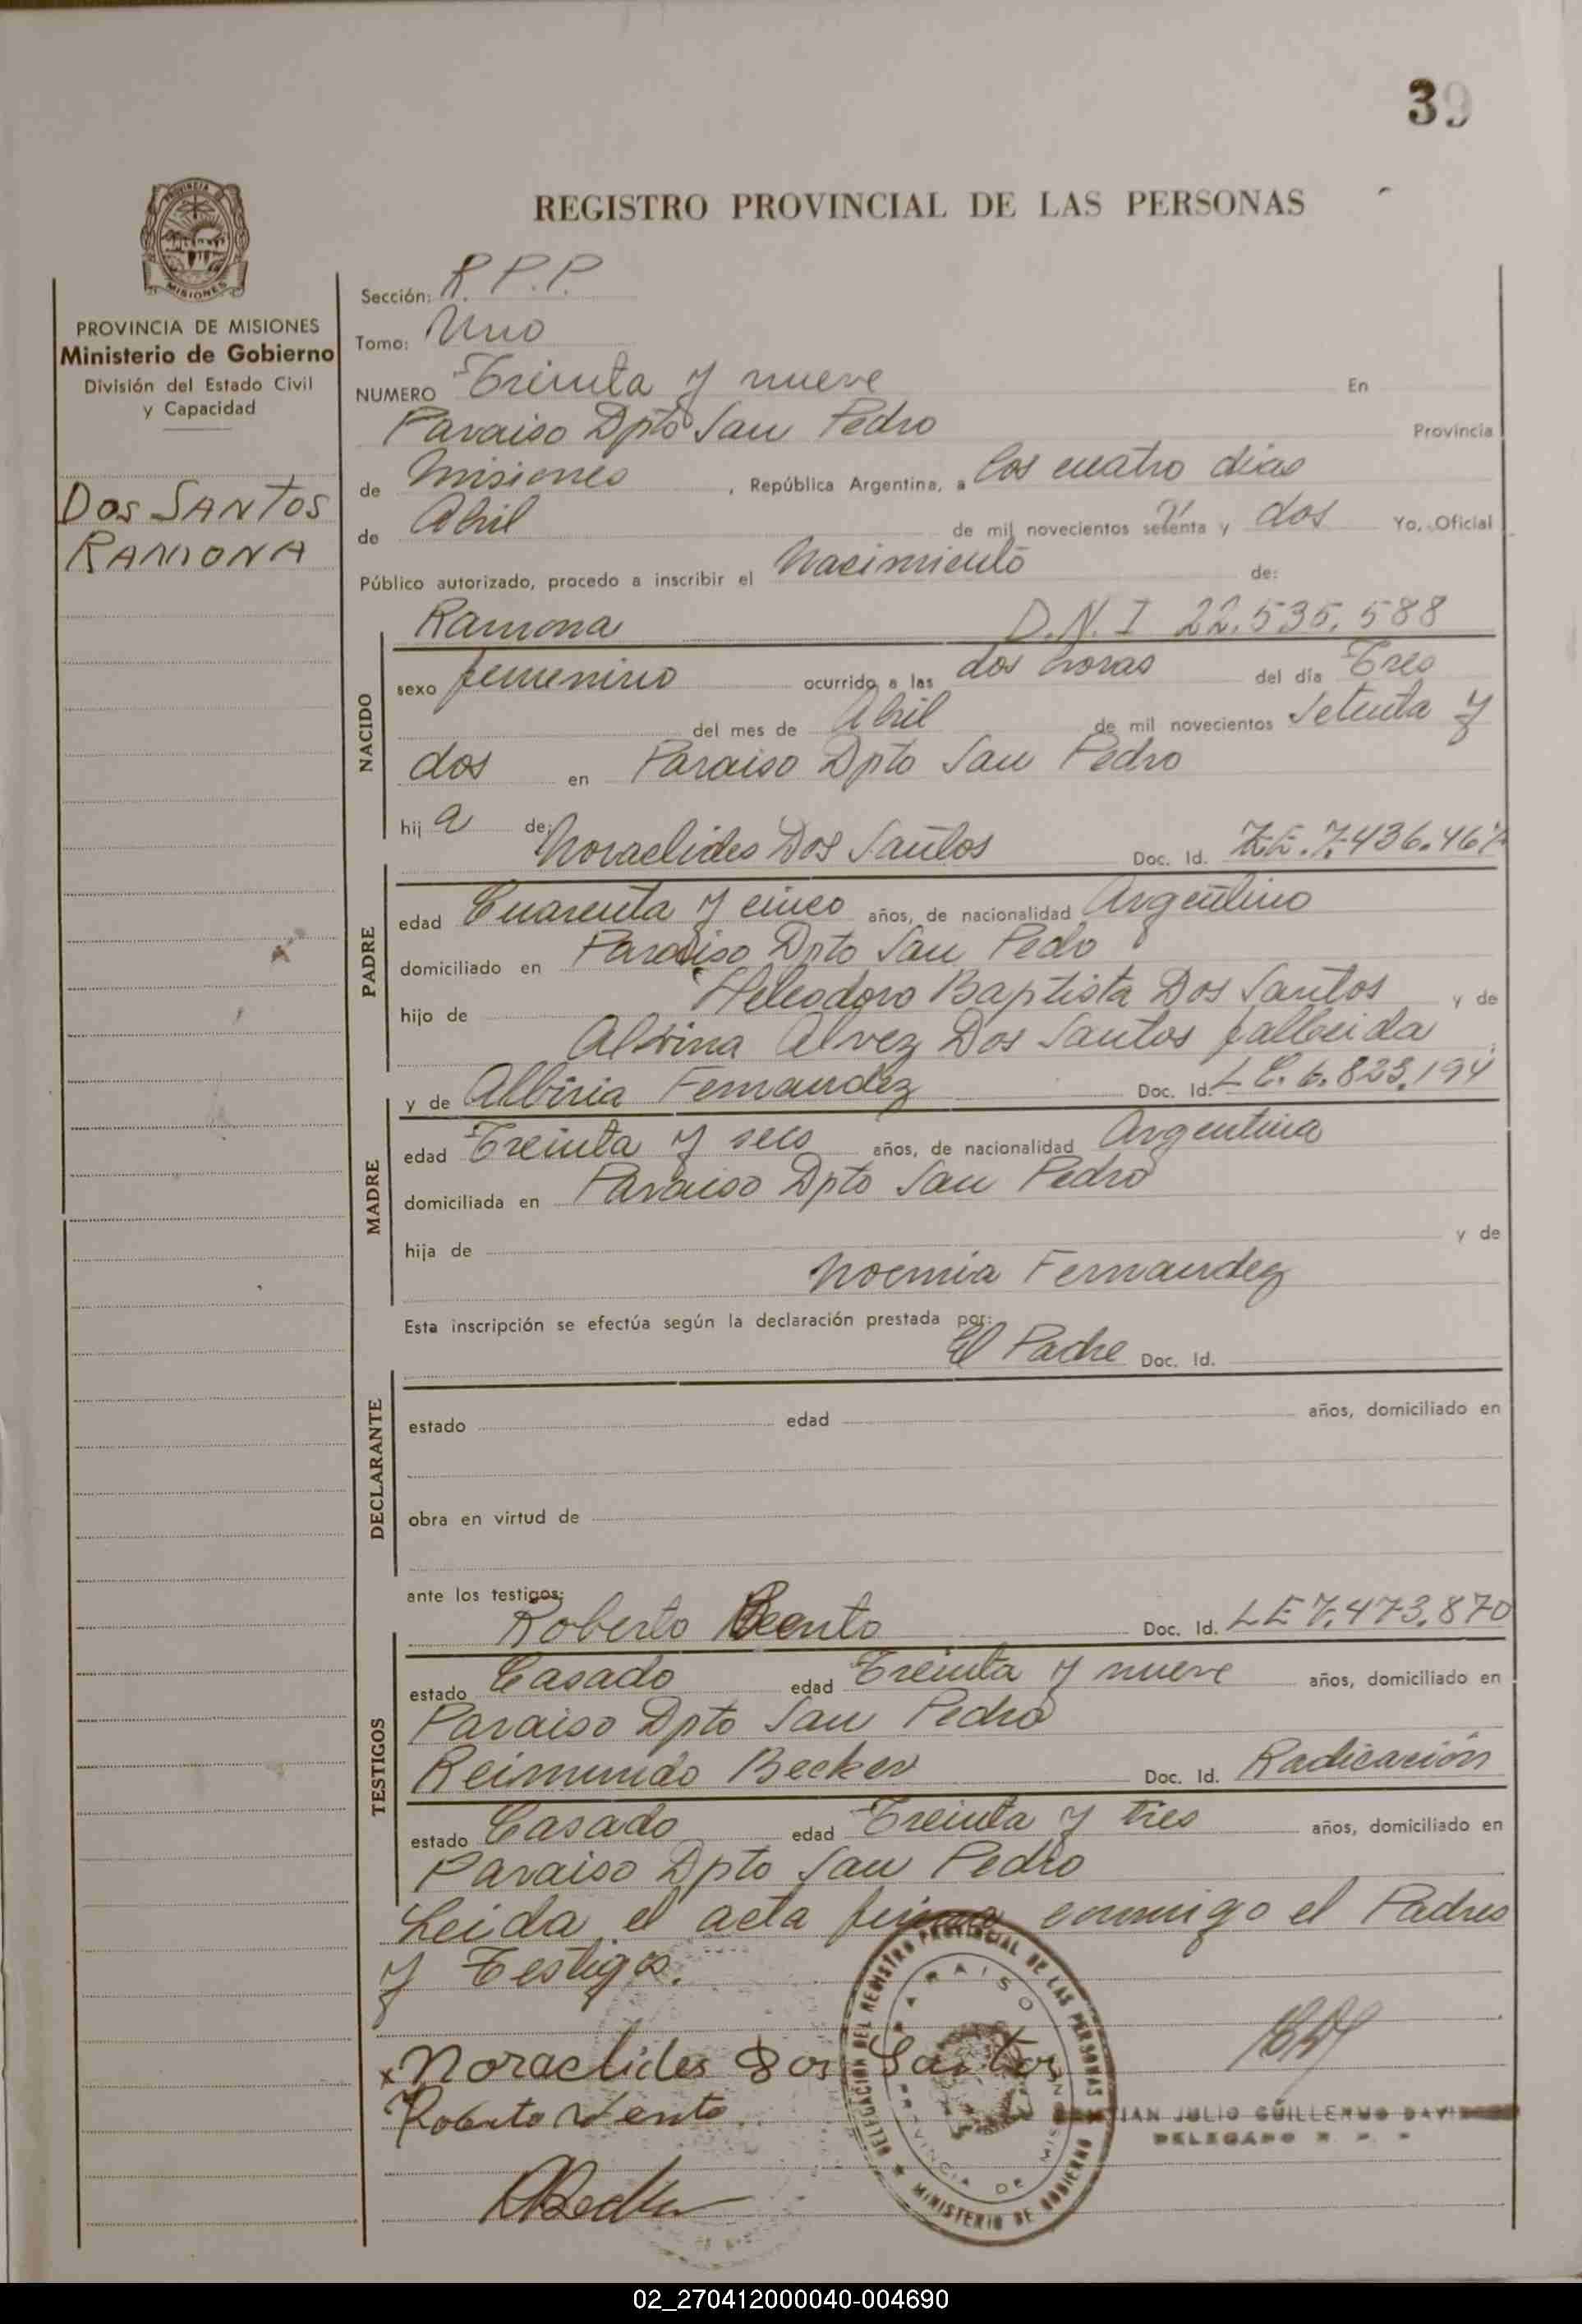 39
REGISTRO PROVINCIAL DE LAS PERSONAS
PROVINCIA DE MISIONES
Ministerio de Gobierno
División del Estado Civil
y Capacidad
DOS SANTOS
RAMONA
Sección: R. P. P.
Tomo: Uno
NUMERO Treinta y nueve En
Paraiso Dpto San Pedro Provincia
de Misiones, República Argentina, a los cuatro dias
de Abril de mil novecientos setenta y dos Yo, Oficial
Público autorizado, procedo a inscribir el Nacimiento de:
Ramona D.N.I 22.535.588
NACIDO
sexo femenino ocurrido a las dos horas del día Tres
del mes de Abril de mil novecientos Setenta y
dos en Paraiso Dpto San Pedro
hij a de: Noraclides Dos Santos Doc. Id. 7.436.461
PADRE
edad Cuarenta y cinco años, de nacionalidad Argentino
domiciliado en Paraiso Dpto San Pedo
hijo de Heleodoro Baptista Dos Santos y de
Alvez Dos Santos fallecida
y de Albiria Fernandez Doc. Id. L C. 6.823.194
MADRE
edad Treinta y seis años, de nacionalidad Argentina
domiciliada en Paraiso Dpto San Pedro
hija de y de
Noemia Fernandez
Esta inscripción se efectúa según la declaración prestada por:
El Padre Doc. Id.
DECLARANTE
estado edad años, domiciliado en
obra en virtud de
ante los testigos:
Roberto Bento Doc. Id. LE 7.473.870
TESTIGOS
estado Casado edad Treinta y nueve años, domiciliado en
Paraiso Dpto San Pedro
Reimundo Becker Doc. Id. Radicación
estado Casado edad Treinta y tres años, domiciliado en
Paraiso Dpto San Pedro
Leida el acta firma conmigo el Padres
y Testigos.
x Noraclides Dos Santos
Roberto Vento
DELEGACION DEL REGISTRO PROVINCIAL DE LAS PERSONAS
MINISTERIO DE GOBIERNO
PARAISO
PROVINCIA DE MISIONES
JULIO GUILLERMO
DELEGADO
02_270412000040-004690